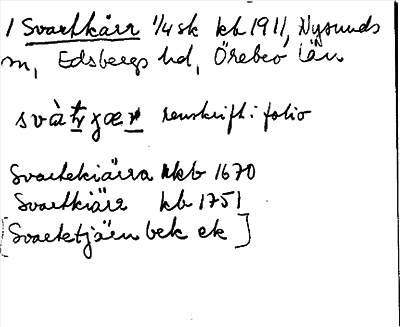 1 Svartkärr 1/4 sk kb 1911, Nysunds
sn, Edsbergs hd, Örebro län
renskrift i folio
Svartekiärra kb 1670
Svartkiärr kb 1751
[Svartetjäen bek ek]